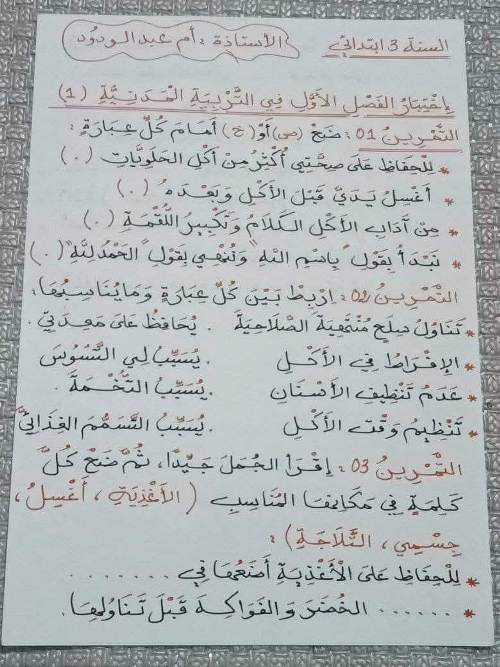 السنة 3 ابتدائي
الأستاذة: أم عبد الودُود
اِخْتِبَارُ الفَصْلِ الأَوَّلِ فِي التَّرْبِيَةِ الْمَدَنِيَّةِ (1)
التَّمْرِينُ 01: ضَعْ (ص) أَوْ (خ) أَمَامَ كُلِّ عِبَارَةٍ:
* لِلْحِفَاظِ عَلَى صِحَّتِي أُكْثِرُ مِنْ أَكْلِ الحَلَوِيَّاتِ (.)
* أَغْسِلُ يَدَيَّ قَبْلَ الأَكْلِ وَبَعْدَهُ (.)
* مِنْ آدَابِ الأَكْلِ الكَلَامُ وَتَكْبِيرُ اللُّقْمَةِ (.)
* نَبْدَأُ بِقَوْلِ "بِاسْمِ اللهِ" وَنُنْهِي بِقَوْلِ "الحَمْدُ لِلَّهِ" (.)
التَّمْرِينُ 02: اِرْبِطْ بَيْنَ كُلِّ عِبَارَةٍ وَمَا يُنَاسِبُهَا:
* تَنَاوُلُ سِلَعٍ مُنْتَهِيَةِ الصَّلَاحِيَةِ . يُحَافِظُ عَلَى مَعِدَتِي.
* الإِفْرَاطُ فِي الأَكْلِ . يُسَبِّبُ لِي التَّسَوُّسَ
* عَدَمُ تَنْظِيفِ الأَسْنَانِ . يُسَبِّبُ التُّخْمَةَ.
* تَنْظِيمُ وَقْتِ الأَكْلِ . يُسَبِّبُ التَّسَمُّمَ الغِذَائِيَّ
التَّمْرِينُ 03: اِقْرَأْ الجُمَلَ جَيِّدًا، ثُمَّ ضَعْ كُلَّ
كَلِمَةٍ فِي مَكَانِهَا المُنَاسِبِ (الأَغْذِيَةِ، أَغْسِلُ،
جِسْمِي، الثَّلَاجَةِ):
* لِلْحِفَاظِ عَلَى الأَغْذِيَةِ أَضَعُهَا فِي .......
* ...... الخُضَرَ وَالفَوَاكِهَ قَبْلَ تَنَاوُلِهَا.